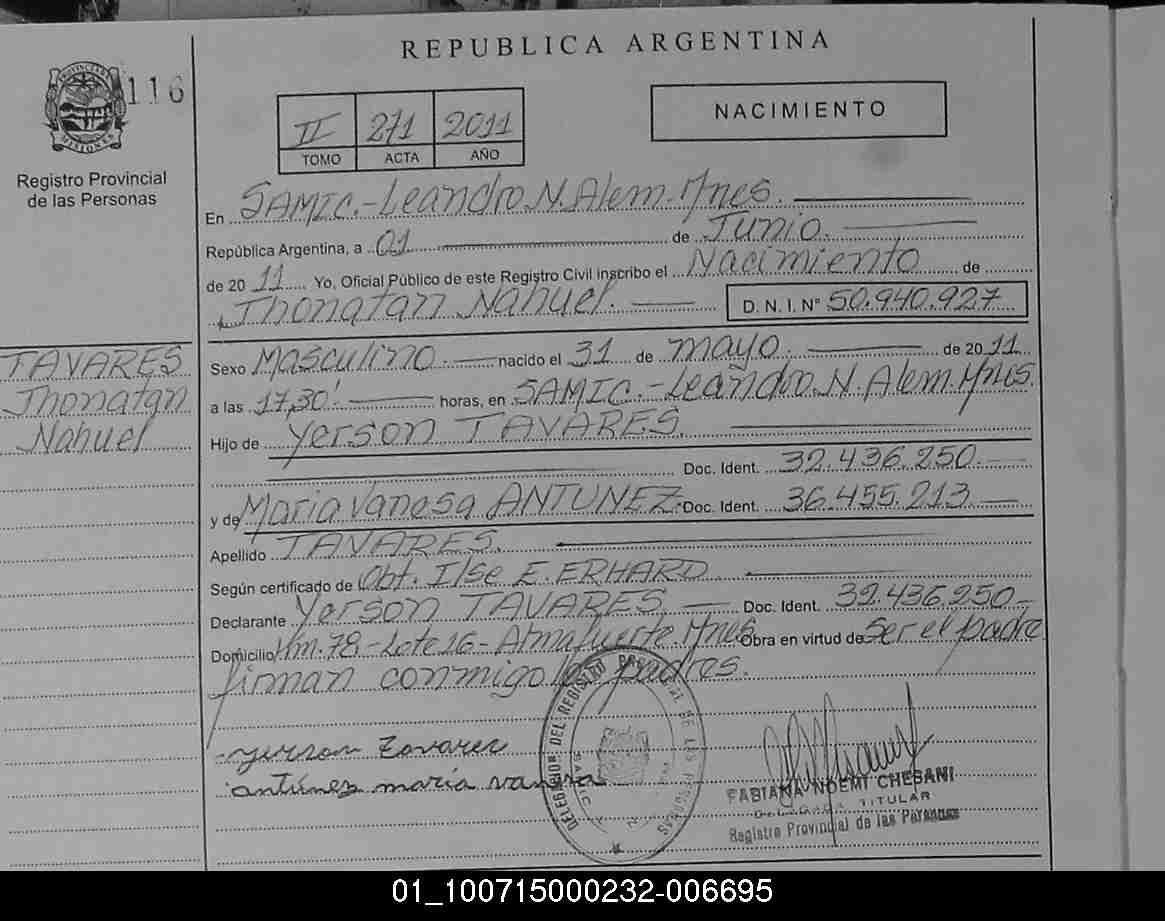 REPUBLICA ARGENTINA
PROVINCIA
MISIONES
116
Registro Provincial
de las Personas
II 271 2011
TOMO ACTA AÑO
NACIMIENTO
En SAMIC.-Leandro N. Alem. Mnes.
República Argentina, a 01 de Junio.
de 2011 Yo, Oficial Público de este Registro Civil inscribo el Nacimiento de
Jhonatan Nahuel. D. N. I. N° 50.940.927
TAVARES
Jhonatan
Nahuel
Sexo Masculino. nacido el 31 de mayo. de 2011
a las 17,30' horas, en SAMIC.-Leandro N. Alem. Mnes.
Hijo de Yerson TAVARES.
Doc. Ident. 32.436.250.
y de Maria Vanesa ANTUNEZ. Doc. Ident. 36.455.213
Apellido TAVARES.
Según certificado de Obt. Ilse E. ERHARD
Declarante Yerson TAVARES Doc. Ident. 32.436.250
Domicilio Km.78-Lote 16-Almafuerte Mnes. Obra en virtud de Ser el padre
firman conmigo los padres.
yerson Tavarez
antúnez maría vanesa
DELEGACION DEL REGISTRO PROVINCIAL DE LAS PERSONAS
FABIANA NOEMI CHEBANI
DELEGADA TITULAR
Registro Provincial de las Personas
01_100715000232-006695